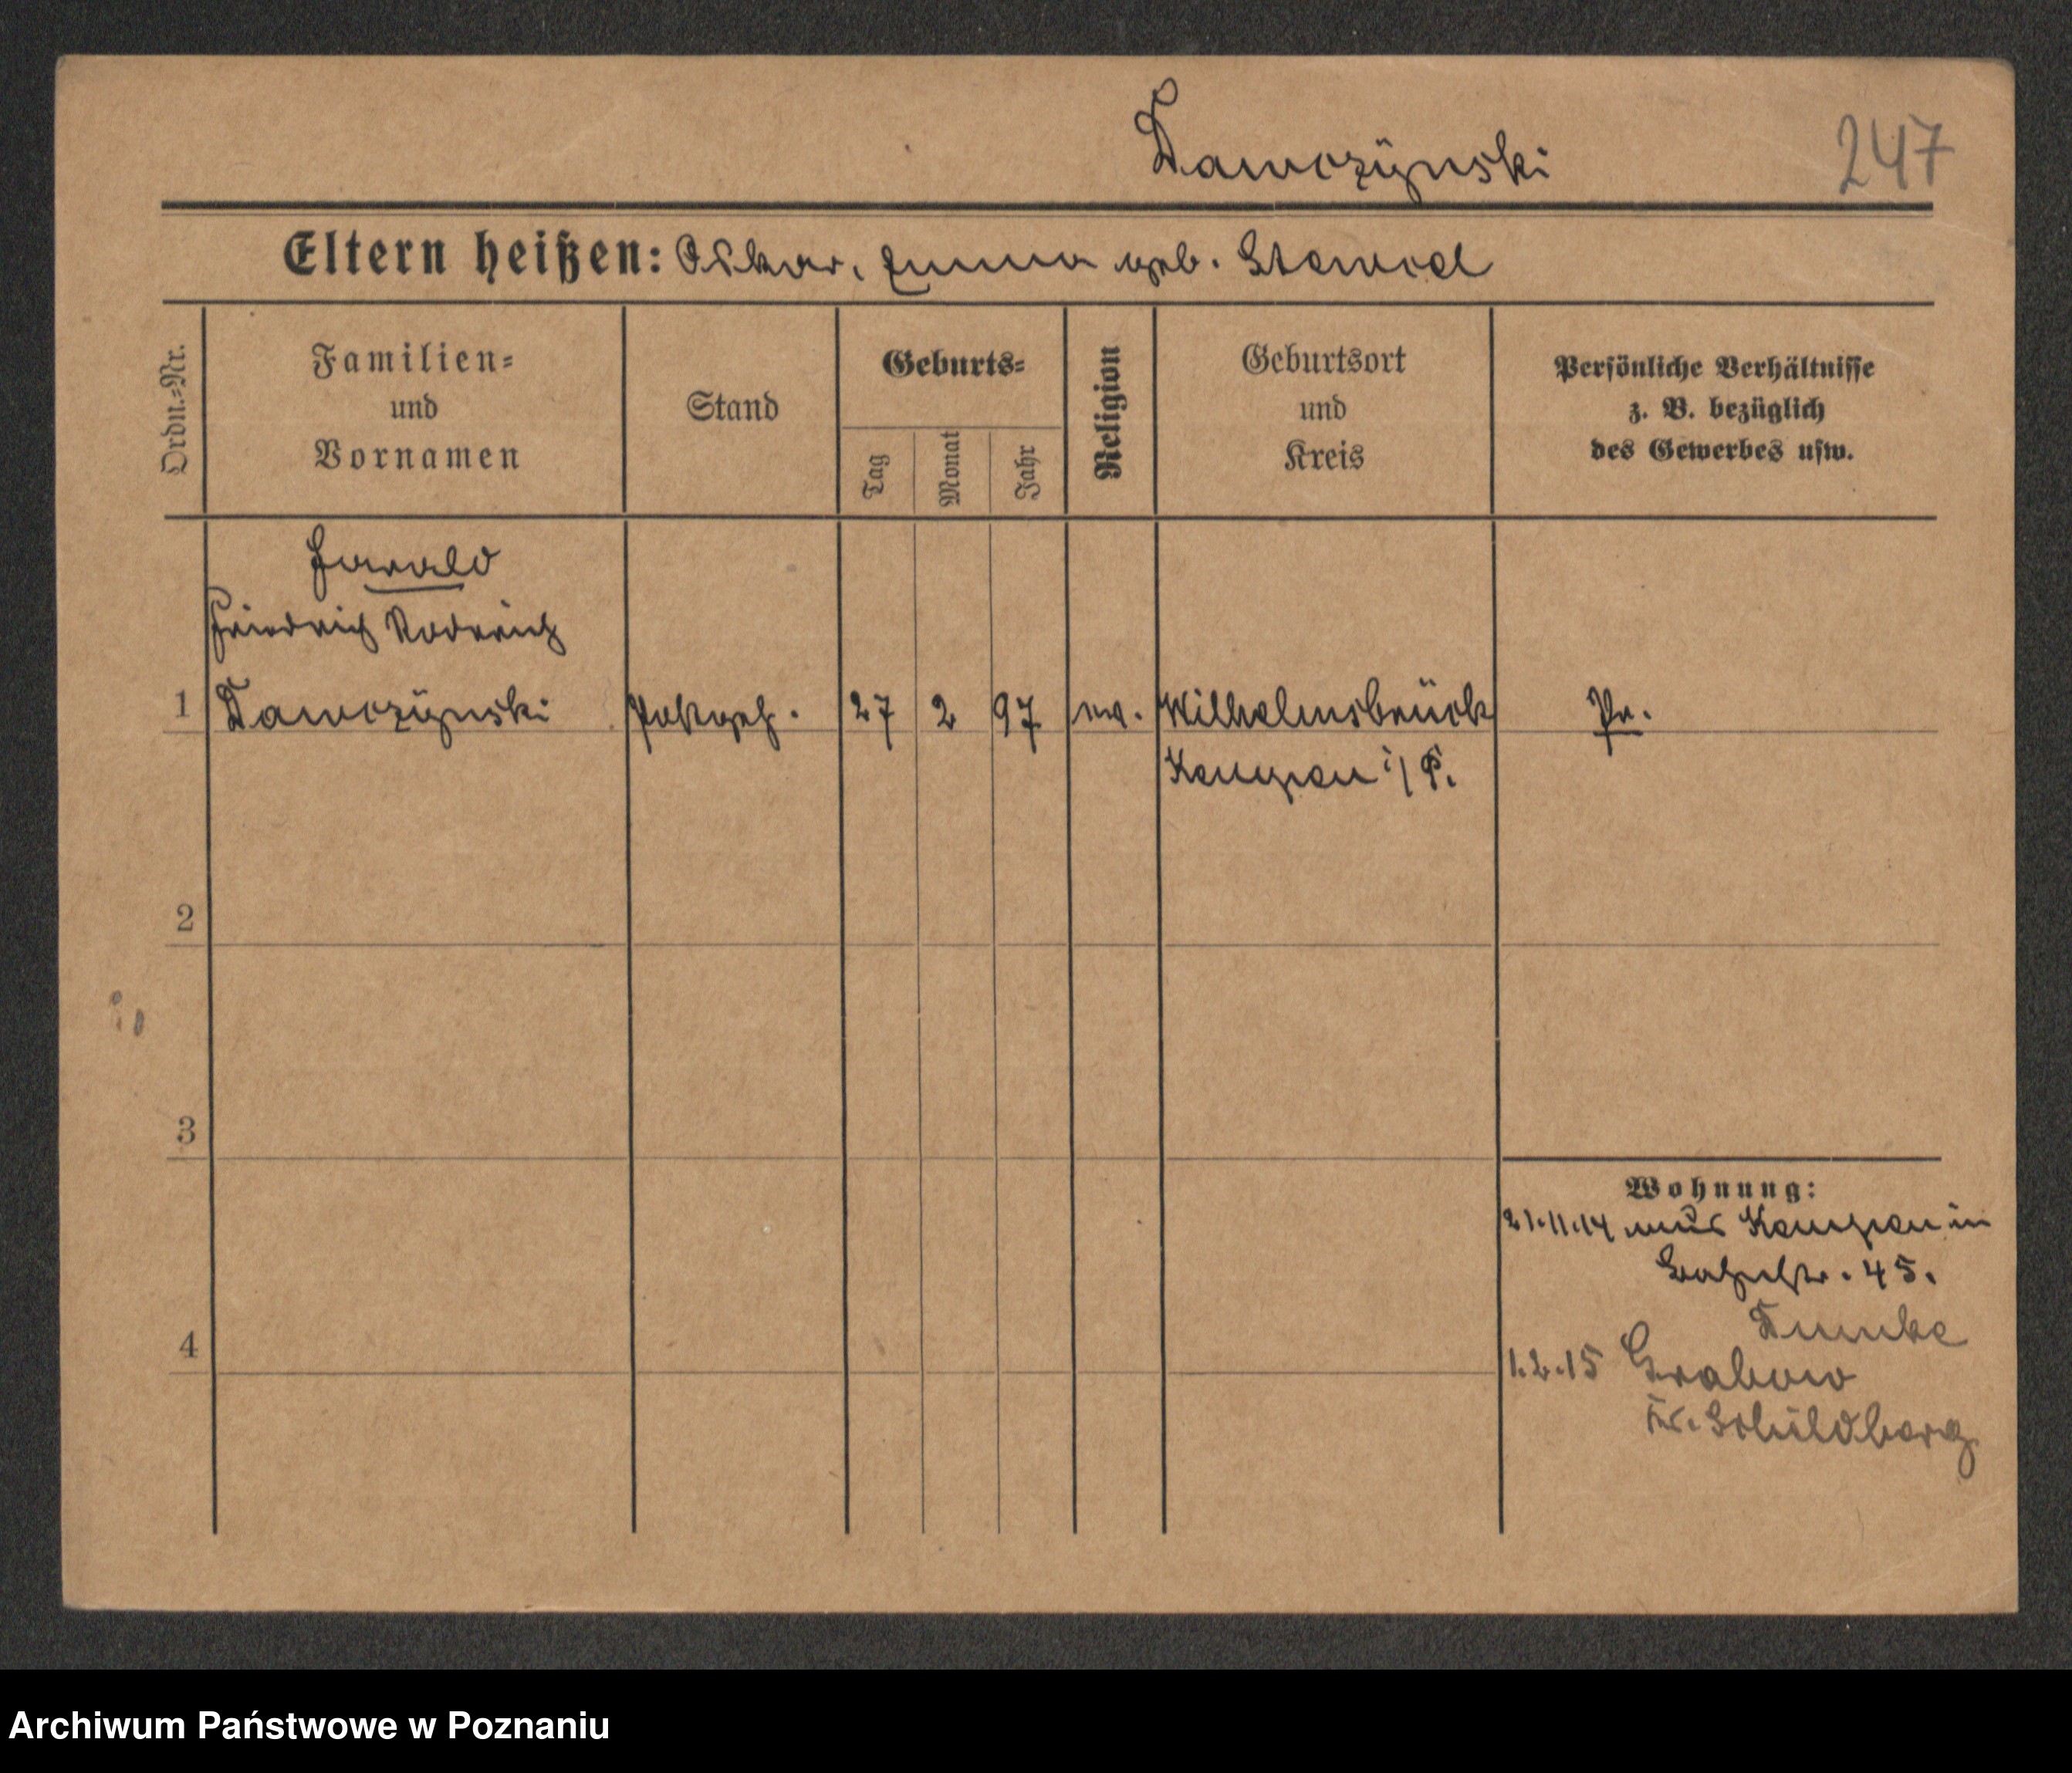 Dawczynski
247
Eltern heißen: Oskar, Emma geb. Stawicl
Ordn.-Nr.
Familien- und Vornamen
Stand
Geburts-
Tag
Monat
Jahr
Religion
Geburtsort und Kreis
Persönliche Verhältnisse z. B. bezüglich des Gewerbes usw.
Ewald
Friedrich Roderich
1 Dawczynski 27 2 97 ev. Wilhelmsbrück Pr.
Kempen i/P.
2
3
4
Wohnung:
21.11.14 aus Kempen in
45.
1.2.15 Grabow
Kr. Schildberg
Archiwum Państwowe w Poznaniu